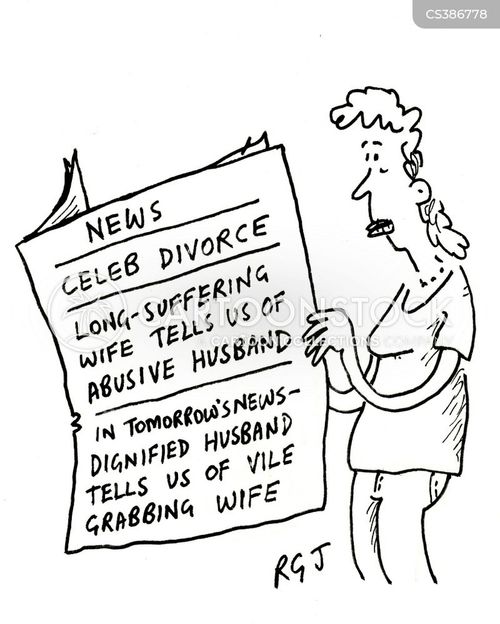 CS386778
NEWS
CELEB DIVORCE
LONG-SUFFERING
WIFE TELLS US OF
ABUSIVE HUSBAND
IN TOMORROW'S NEWS-
DIGNIFIED HUSBAND
TELLS US OF VILE
GRABBING WIFE
CARTOONSTOCK
CARTOON COLLECTIONS COMPANY
RGJ